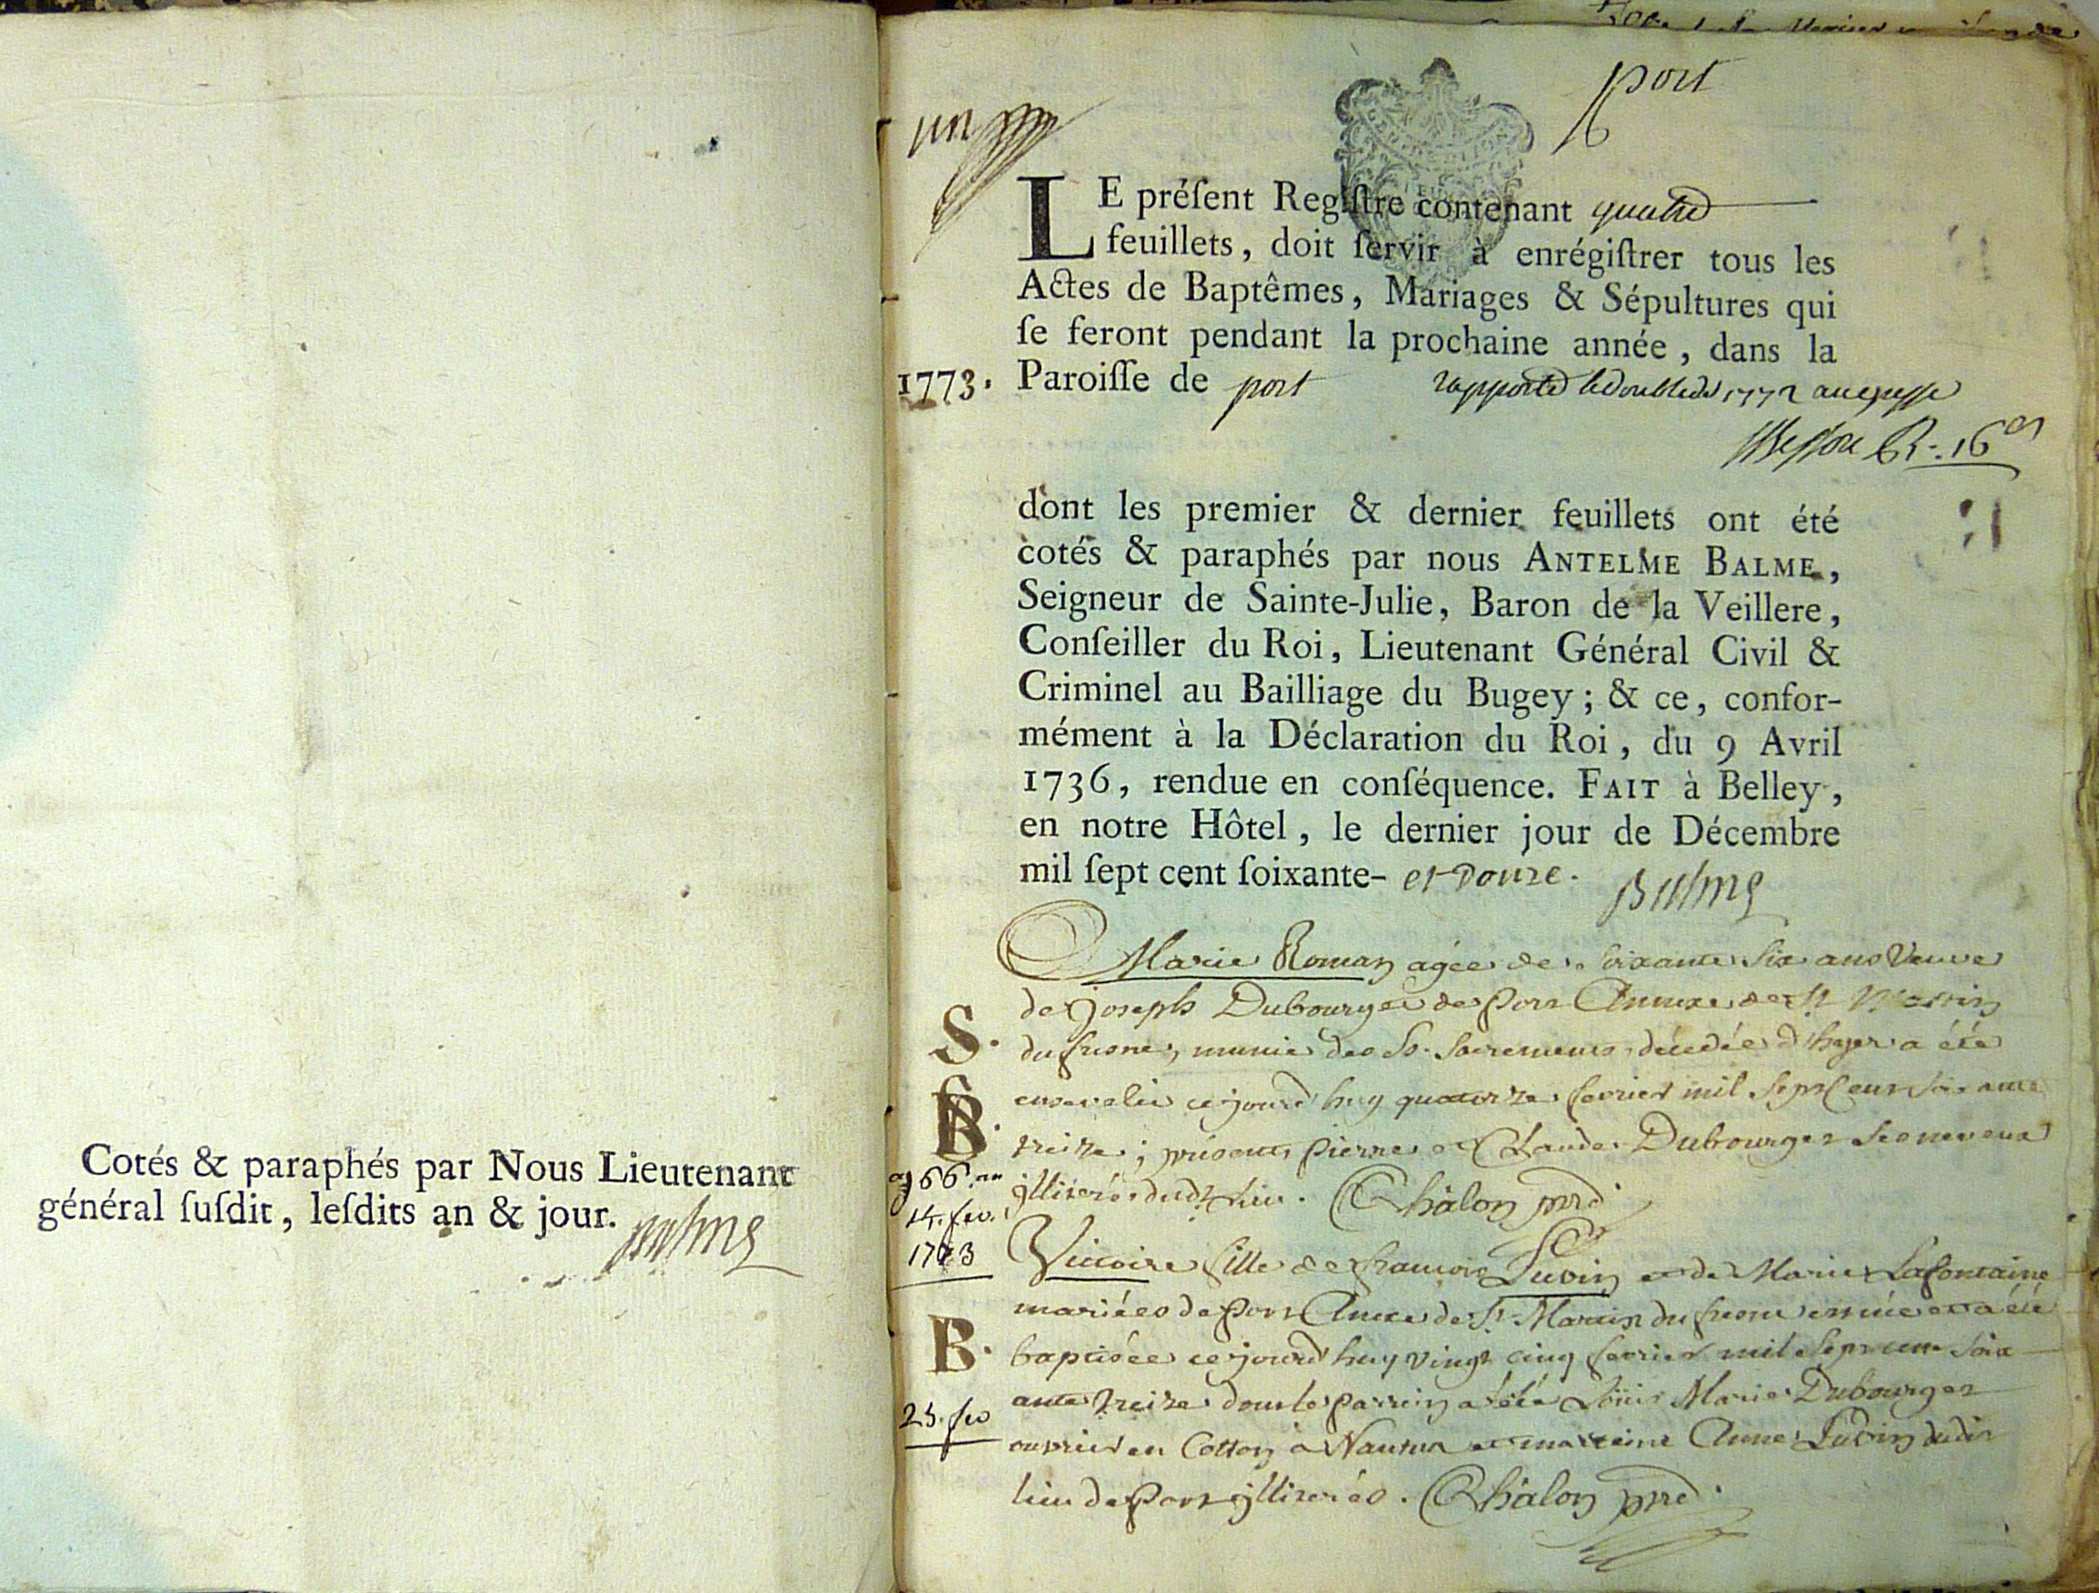 Cotés & paraphés par Nous Lieutenant
général ſuſdit, leſdits an & jour.
Balme
port
un
LE préſent Regiſtre contenant quatre
feuillets, doit ſervir à enrégiſtrer tous les
Actes de Baptêmes, Mariages & Sépultures qui
ſe feront pendant la prochaine année, dans la
1773. Paroiſſe de port rapporté le double de 1772 au greffe
R. 16
dont les premier & dernier feuillets ont été
cotés & paraphés par nous ANTELME BALME,
Seigneur de Sainte-Julie, Baron de la Veillere,
Conſeiller du Roi, Lieutenant Général Civil &
Criminel au Bailliage du Bugey; & ce, confor-
mément à la Déclaration du Roi, du 9 Avril
1736, rendue en conſéquence. FAIT à Belley,
en notre Hôtel, le dernier jour de Décembre
mil ſept cent ſoixante- et douze. Balme
Marie Roman agée de soixante six ans Veuve
de Joseph Dubourget de Port Annexe de St Martin
S. du fresne, munie des Ss. Sacrements, décédée d'hyer a été
ensevelie ce jourd'huy quatorze fevrier mil Sept Cent soixante
B. treize; présents Pierre et Claude Dubourget ses neveux
ag 66. an jllitérés dudt lieu. Chalon
14. fev.
1773 Victoire fille de francois Juvin et de Marie Lafontaine
mariés de Port Anexe de St Martin du fresne est née et a été
B. baptisée ce jourd'huy vingt cinq fevrier mil Sept cent soix
ante treize dont le parrein a été Loüis Marie Dubourget
25. fev
ouvrier en Cotton a Nantua et marreine Anne Juvin dudit
lieu de Port jllitérés. Chalon